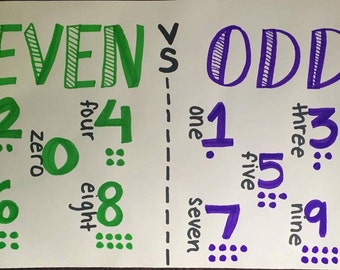 EVEN VS ODD
2 four 4
zero 0
6 eight 8
one 1 three 3
five 5
seven 7 nine 9